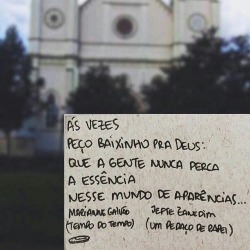 ÀS VEZES
PEÇO BAIXINHO PRA DEUS:
QUE A GENTE NUNCA PERCA
A ESSÊNCIA
NESSE MUNDO DE APARÊNCIAS...
MARIANNE GALVÃO JEPTE ZANEDIM
(TEMPO DO TEMPO) (UM PEDAÇO DE PAPEL)